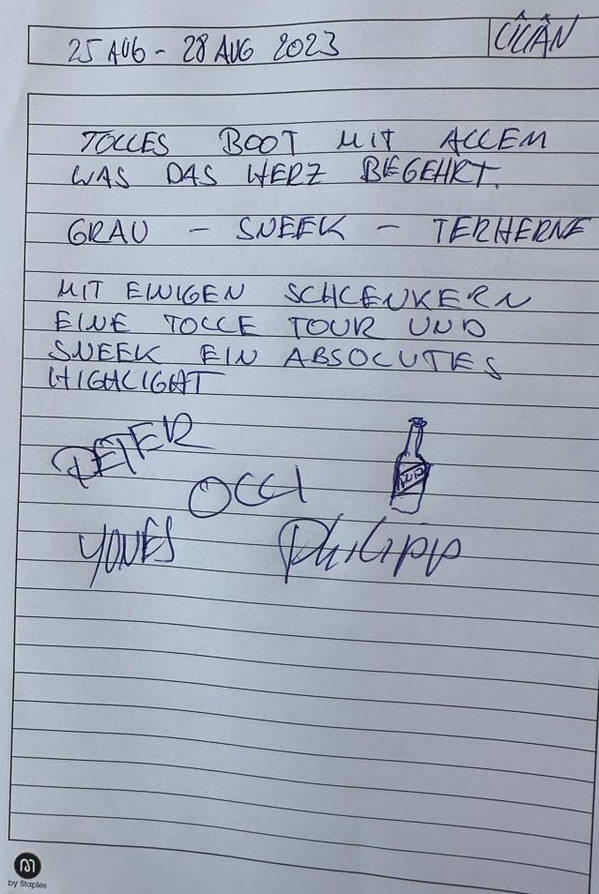 25 AUG - 28 AUG 2023
TOLLES BOOT MIT ALLEM
WAS DAS HERZ BEGEHRT.
GRAU - SNEEK - TERHERNE
MIT EINIGEN SCHLENKERN
EINE TOLLE TOUR UND
SNEEK EIN ABSOLUTES
HIGHLIGHT
PETER
OLLI
YONES
Philipp
by Staples